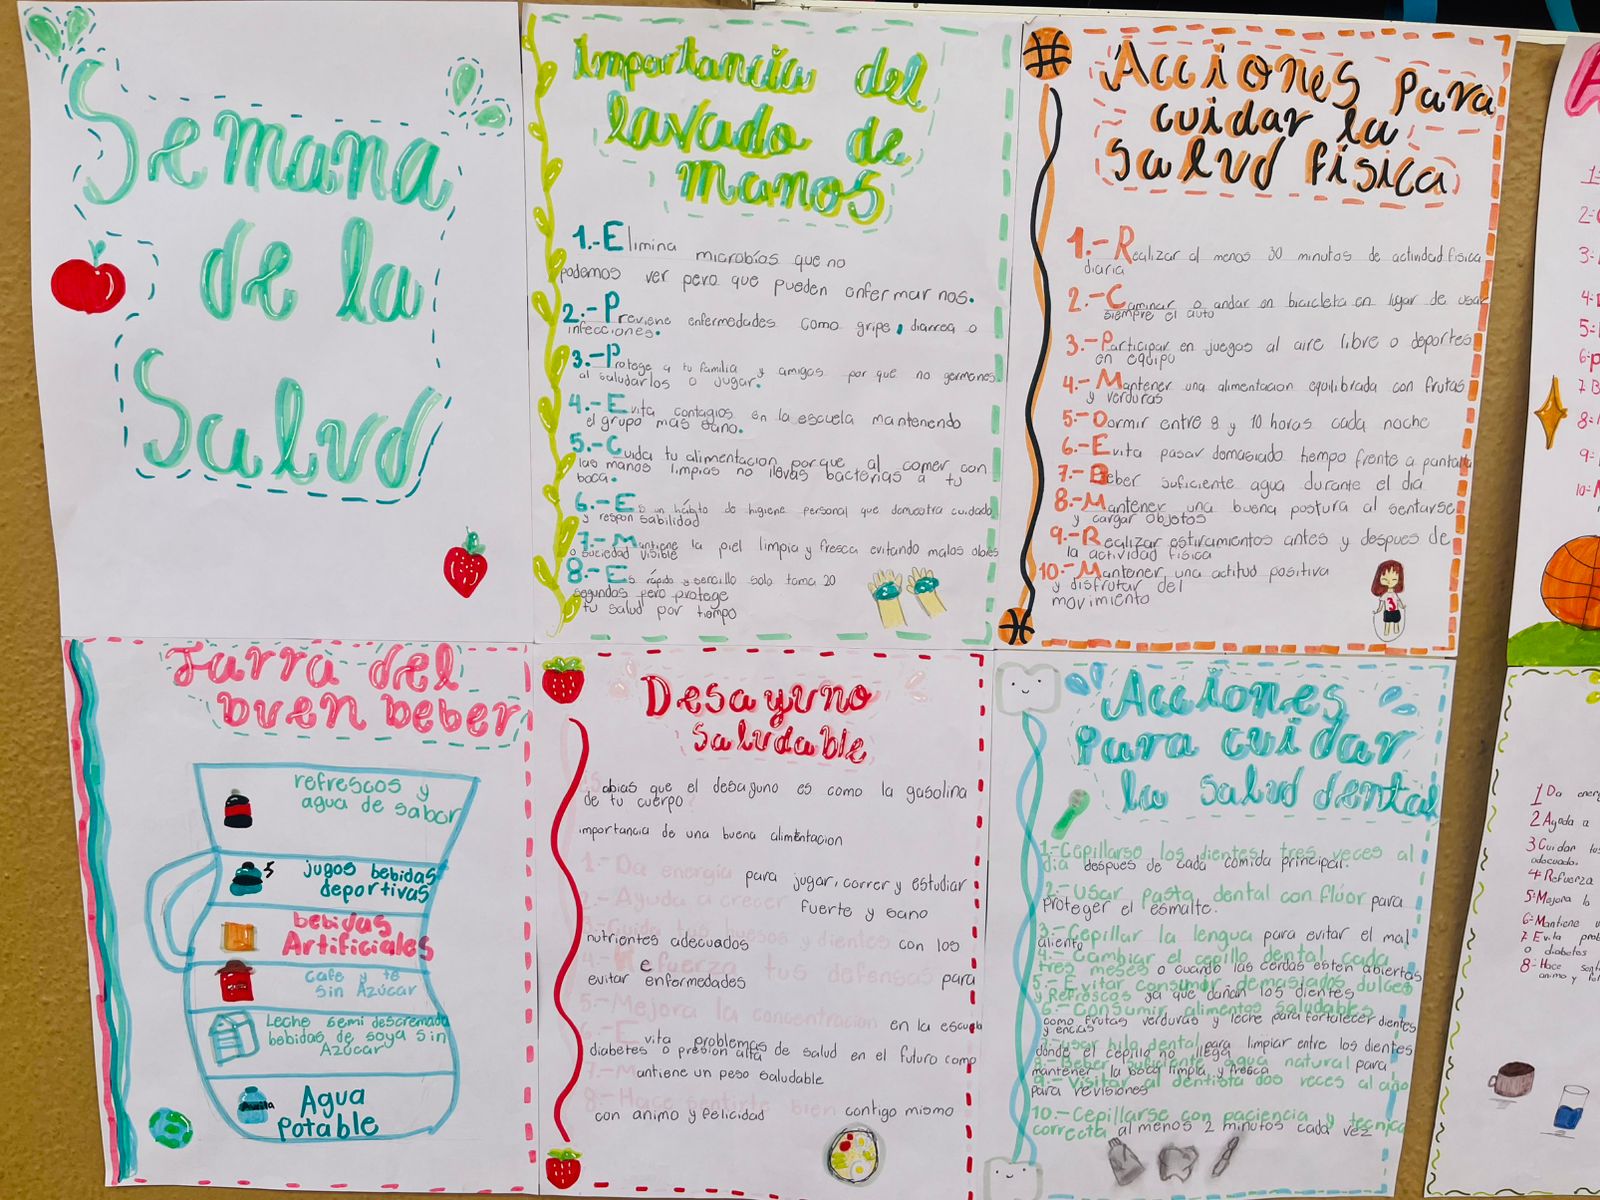 Semana
de la
Salud
Importancia del
lavado de
manos
1.- Elimina microbios que no
podemos ver pero que pueden enfermarnos.
2.- Previene enfermedades como gripe, diarrea o
infecciones.
3.- Protege a tu familia y amigos por que no germenes
al saludarlos o jugar.
4.- Evita contagios en la escuela manteniendo
el grupo mas sano.
5.- Cuida tu alimentacion porque al comer con
las manos limpias no llevas bacterias a tu
boca.
6.- Es un hábito de higiene personal que demuestra cuidado
y responsabilidad
7.- Mantiene la piel limpia y fresca evitando malos olores
o suciedad visible
8.- Es rápido y sencillo solo toma 20
segundos pero protege
tu salud por tiempo
Acciones para
cuidar la
salud física
1.- Realizar al menos 30 minutos de actividad física
diaria
2.- Caminar o andar en bicicleta en lugar de usar
siempre el auto
3.- Participar en juegos al aire libre o deportes
en equipo
4.- Mantener una alimentacion equilibrada con frutas
y verduras
5.- Dormir entre 8 y 10 horas cada noche
6.- Evita pasar demasiado tiempo frente a pantalla
7.- Beber suficiente agua durante el día
8.- Mantener una buena postura al sentarse
y cargar objetos
9.- Realizar estiramientos antes y despues de
la actividad física
10.- Mantener una actitud positiva
y disfrutar del
movimiento
3
Jarra del
buen beber
refrescos y
agua de sabor
jugos bebidas
deportivas
bebidas
Artificiales
cafe y te
sin Azúcar
Leche semi descremada
bebidas de soya sin
Azúcar
Agua
potable
Desayuno
saludable
Sabias que el desayuno es como la gasolina
de tu cuerpo
importancia de una buena alimentacion
1.- Da energía para jugar, correr y estudiar
2.- Ayuda a crecer fuerte y sano
3.- Cuida tus huesos y dientes con los
nutrientes adecuados
4.- Refuerza tus defensas para
evitar enfermedades
5.- Mejora la concentracion en la escuela
6.- Evita problemas de salud en el futuro como
diabetes o presion alta
7.- Mantiene un peso saludable
8.- Hace sentirte bien contigo mismo
con animo y felicidad
Acciones
para cuidar
la salud dental
1.- Cepillarse los dientes tres veces al
día despues de cada comida principal.
2.- Usar pasta dental con flúor para
proteger el esmalte.
3.- Cepillar la lengua para evitar el mal
aliento
4.- Cambiar el cepillo dental cada
tres meses o cuando las cerdas esten abiertas
5.- Evitar consumir demasiados dulces
y Refrescos ya que dañan los dientes
6.- Consumir alimentos saludables
como frutas verduras y leche para fortalecer dientes
y encias
7.- usar hilo dental para limpiar entre los dientes
donde el cepillo no llega
8.- Beber suficiente agua natural para
mantener la boca limpia y fresca
9.- Visitar al dentista dos veces al año
para revisiones
10.- Cepillarse con paciencia y tecnica
correcta al menos 2 minutos cada vez
A
1.-
2.-
3.-
4.-
5.-
6.-
7
8.-
9.-
10.-
1 Da
2 Ayuda a
3 Cuidar
adecuado.
4 Refuerza
5 Mejora la
6 Mantiene
7 Evita
o diabetes
8- Hace
animo y